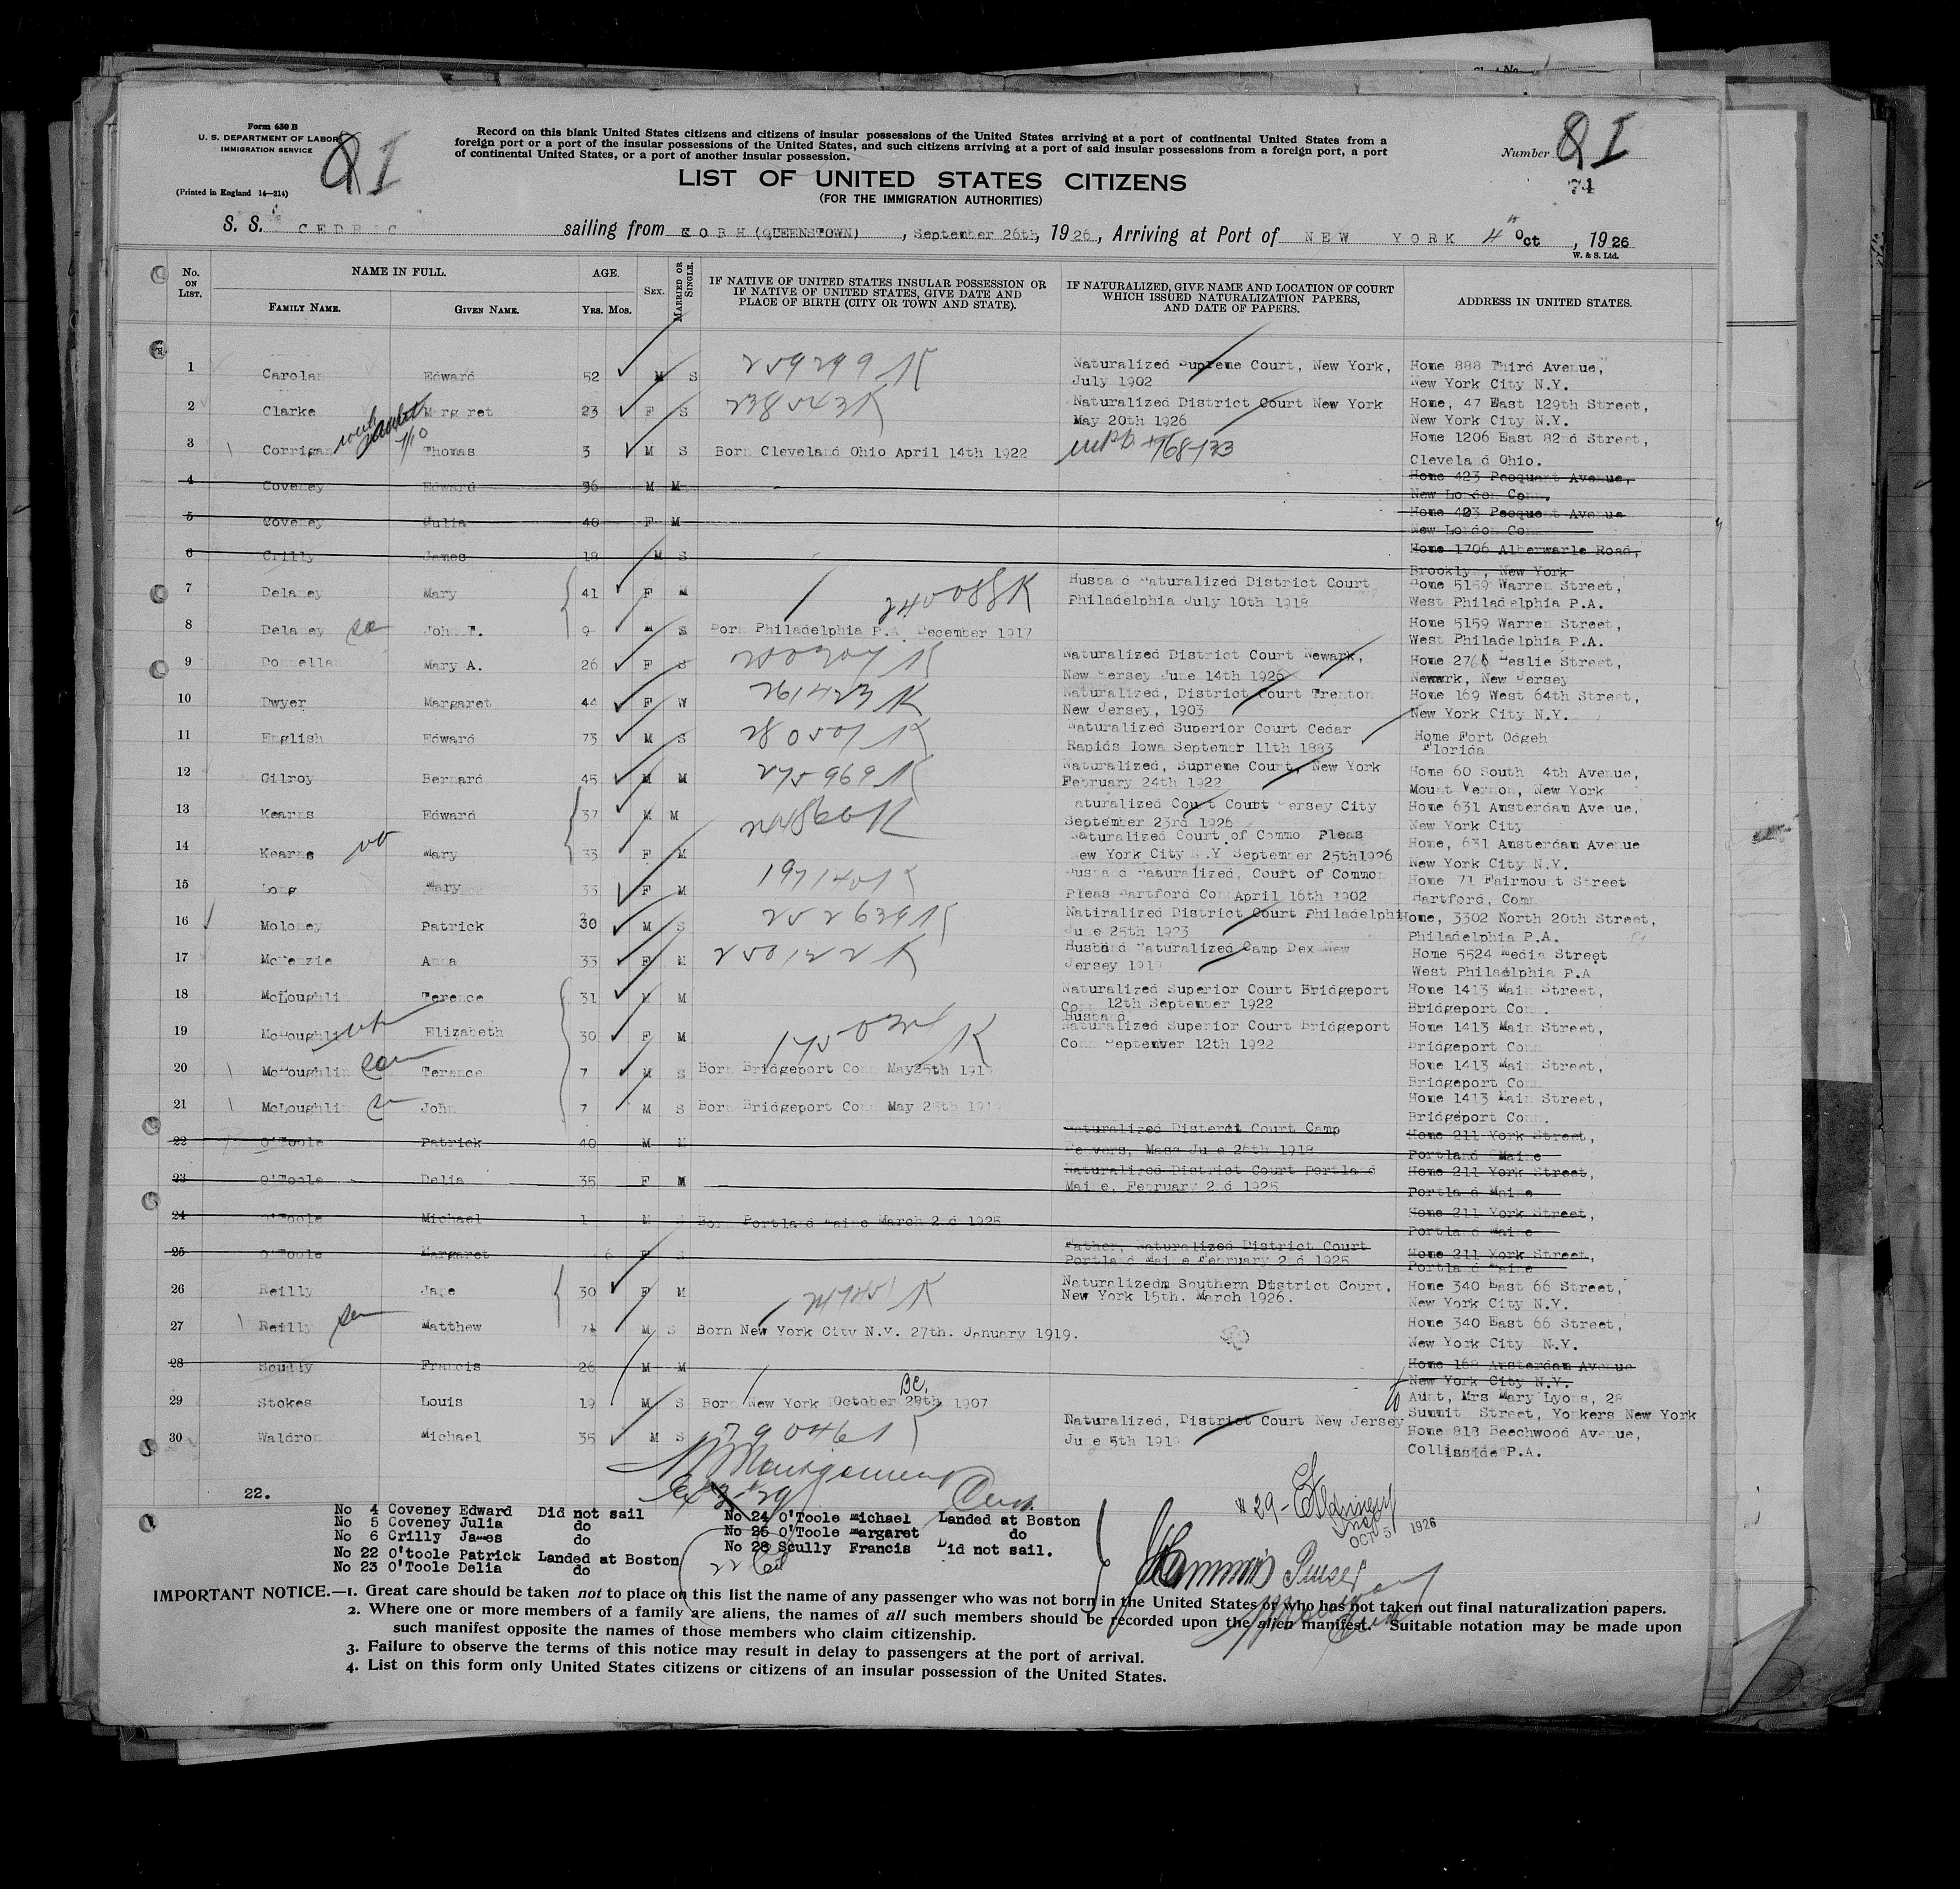 Form 630 B
U. S. DEPARTMENT OF LABOR
IMMIGRATION SERVICE
(Printed in England 14—214)
Record on this blank United States citizens and citizens of insular possessions of the United States arriving at a port of continental United States from a
foreign port or a port of the insular possessions of the United States, and such citizens arriving at a port of said insular possessions from a foreign port, a port
of continental United States, or a port of another insular possession.
Number
71
LIST OF UNITED STATES CITIZENS
(FOR THE IMMIGRATION AUTHORITIES)
S. S. CEDRIC sailing from COBH (QUEENSTOWN), September 26th, 1926, Arriving at Port of NEW YORK 4" Oct, 1926
W. & S. Ltd.
No. ON LIST. NAME IN FULL. FAMILY NAME. GIVEN NAME. AGE. YRS. MOS. SEX. MARRIED OR SINGLE. IF NATIVE OF UNITED STATES INSULAR POSSESSION OR IF NATIVE OF UNITED STATES, GIVE DATE AND PLACE OF BIRTH (CITY OR TOWN AND STATE). IF NATURALIZED, GIVE NAME AND LOCATION OF COURT WHICH ISSUED NATURALIZATION PAPERS, AND DATE OF PAPERS. ADDRESS IN UNITED STATES.
1 Carolan Edward 52 M S 259299 K Naturalized Supreme Court, New York, July 1902 Home 888 Third Avenue, New York City N.Y.
2 Clarke Margaret 23 F S 238543K Naturalized District Court New York May 20th 1926 Home, 47 East 129th Street, New York City N.Y.
3 Corrigan Thomas 3 M S Born Cleveland Ohio April 14th 1922 Home 1206 East 82nd Street, Cleveland Ohio.
4 Coveney Edward 36 M M Home 423 Pecquant Avenue, New London Conn.
5 Coveney Julia 40 F M Home 423 Pecquent Avenue New London Conn
6 Crilly James 18 M S Home 1706 Alberwarle Road, Brooklyn, New York
7 Delaney Mary 41 F M 245088K Husband Naturalized District Court Philadelphia July 10th 1918 Home 5159 Warren Street, West Philadelphia P.A.
8 Delaney son John T. 9 M S Born Philadelphia P.A. December 1917 Home 5159 Warren Street, West Philadelphia P.A.
9 Donnellan Mary A. 26 F S Naturalized District Court Newark, New Jersey June 14th 1926 Home 276 Leslie Street, Newark, New Jersey
10 Dwyer Margaret 44 F W 261423 K Naturalized, District Court Trenton New Jersey, 1903 Home 169 West 64th Street, New York City N.Y.
11 English Edward 73 M S 280501 K Naturalized Superior Court Cedar Rapids Iowa Septemer 11th 1883 Home Fort Odgeh Florida
12 Gilroy Bernard 45 M M 275969 K Naturalized, Supreme Court, New York February 24th 1922 Home 60 South 4th Avenue, Mount Vernon, New York
13 Kearns Edward 37 M M 244860K Naturalized Court Court Jersey City September 23rd 1926 Home 631 Amsterdam Avenue, New York City
14 Kearns Mary 33 F M Naturalized Court of Common Pleas New York City N.Y September 25th1926 Home, 631 Amsterdam Avenue New York City N.Y.
15 Long Mary 33 F M 197140K Husband Naturalized, Court of Common Pleas Hartford Conn April 16th 1902 Home 71 Fairmount Street Hartford, Conn
16 Moloney Patrick 30 M S 252639K Natiralized District Court Philadelphi June 25th 1923 Home, 3302 North 20th Street, Philadelphia P.A.
17 McKenzie Anna 33 F M 250122 K Husband Naturalized Camp Dex New Jersey 1919 Home 5524 Media Street West Philadelphia P.A
18 McLoughlin Terence 31 M M Naturalized Superior Court Bridgeport Conn 12th September 1922 Home 1413 Main Street, Bridgeport Conn.
19 McLoughlin wife Elizabeth 30 F M K Husband Naturalized Superior Court Bridgeport Conn September 12th 1922 Home 1413 Main Street, Bridgeport Conn
20 McLoughlin son Terence 7 M S Born Bridgeport Conn May25th 1919 Home 1413 Main Street, Bridgeport Conn
21 McLoughlin son John 7 M S Born Bridgeport Conn May 25th 1919 Home 1413 Main Street, Bridgeport Conn.
22 O'Toole Patrick 40 M M Naturalized Disterct Court Camp Devers, Mass June 26th 1918 Home 211 York Street, Portland Maine
23 O'Toole Delia 35 F M Naturalized District Court Portland Maine, February 2nd 1925 Home 211 York Street, Portland Maine
24 O'Toole Michael 1 M S Born Portland Maine March 2nd 1925 Home 211 York Street, Portland Maine
25 O'Toole Margaret 6 F S Father, Naturalized District Court Portland Maine February 2nd 1925 Home 211 York Street, Portland Maine
26 Reilly Jane 30 F M K Naturalizedm Southern District Court, New York 15th. March 1926. Home 340 East 66 Street, New York City N.Y.
27 Reilly son Matthew 7 M S Born New York City N.Y. 27th. January 1919. Home 340 East 66 Street, New York City N.Y.
28 Scully Francis 26 M M Home 168 Amsterdam Avenue New York City N.Y.
29 Stokes Louis 19 M S Born New York October 29th 1907 BC. Aunt, Mrs Mary Lyons, 28 Summit Street, Yonkers New York
30 Waldron Michael 35 M S 290461K Naturalized, District Court New Jersey June 5th 1919 Home 818 Beechwood Avenue, Collisside P.A.
22.
No 4 Coveney Edward Did not sail
No 5 Coveney Julia do
No 6 Crilly James do
No 22 O'toole Patrick Landed at Boston
No 23 O'Toole Delia do
No 24 O'Toole Michael Landed at Boston
No 25 O'Toole Margaret do
No 28 Scully Francis Did not sail.
OCT 5 1926
Purser
IMPORTANT NOTICE.—1. Great care should be taken not to place on this list the name of any passenger who was not born in the United States or who has not taken out final naturalization papers.
2. Where one or more members of a family are aliens, the names of all such members should be recorded upon the alien manifest. Suitable notation may be made upon
such manifest opposite the names of those members who claim citizenship.
3. Failure to observe the terms of this notice may result in delay to passengers at the port of arrival.
4. List on this form only United States citizens or citizens of an insular possession of the United States.